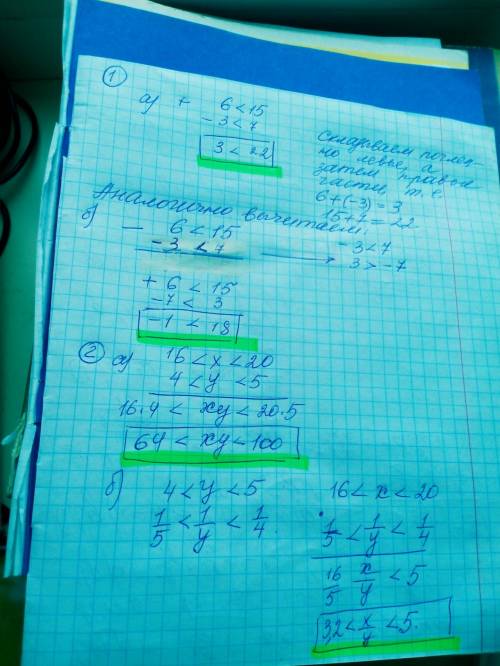 1
а) + 6 < 15
-3 < 7
3 < 22
Складываем почлен-
но левые, а
затем правые
части, т.е
6+(-3) = 3
15+7 = 22
Аналогично вычитаем:
б) - 6 < 15
-3 < 7
-3 < 7
3 > -7
+ 6 < 15
-7 < 3
-1 < 18
2 а) 16 < x < 20
4 < y < 5
16·4 < xy < 20·5
64 < xy < 100
б) 4 < y < 5
1/5 < 1/y < 1/4
16 < x < 20
1/5 < 1/y < 1/4
16/5 x/y < 5
3,2 < x/y < 5.